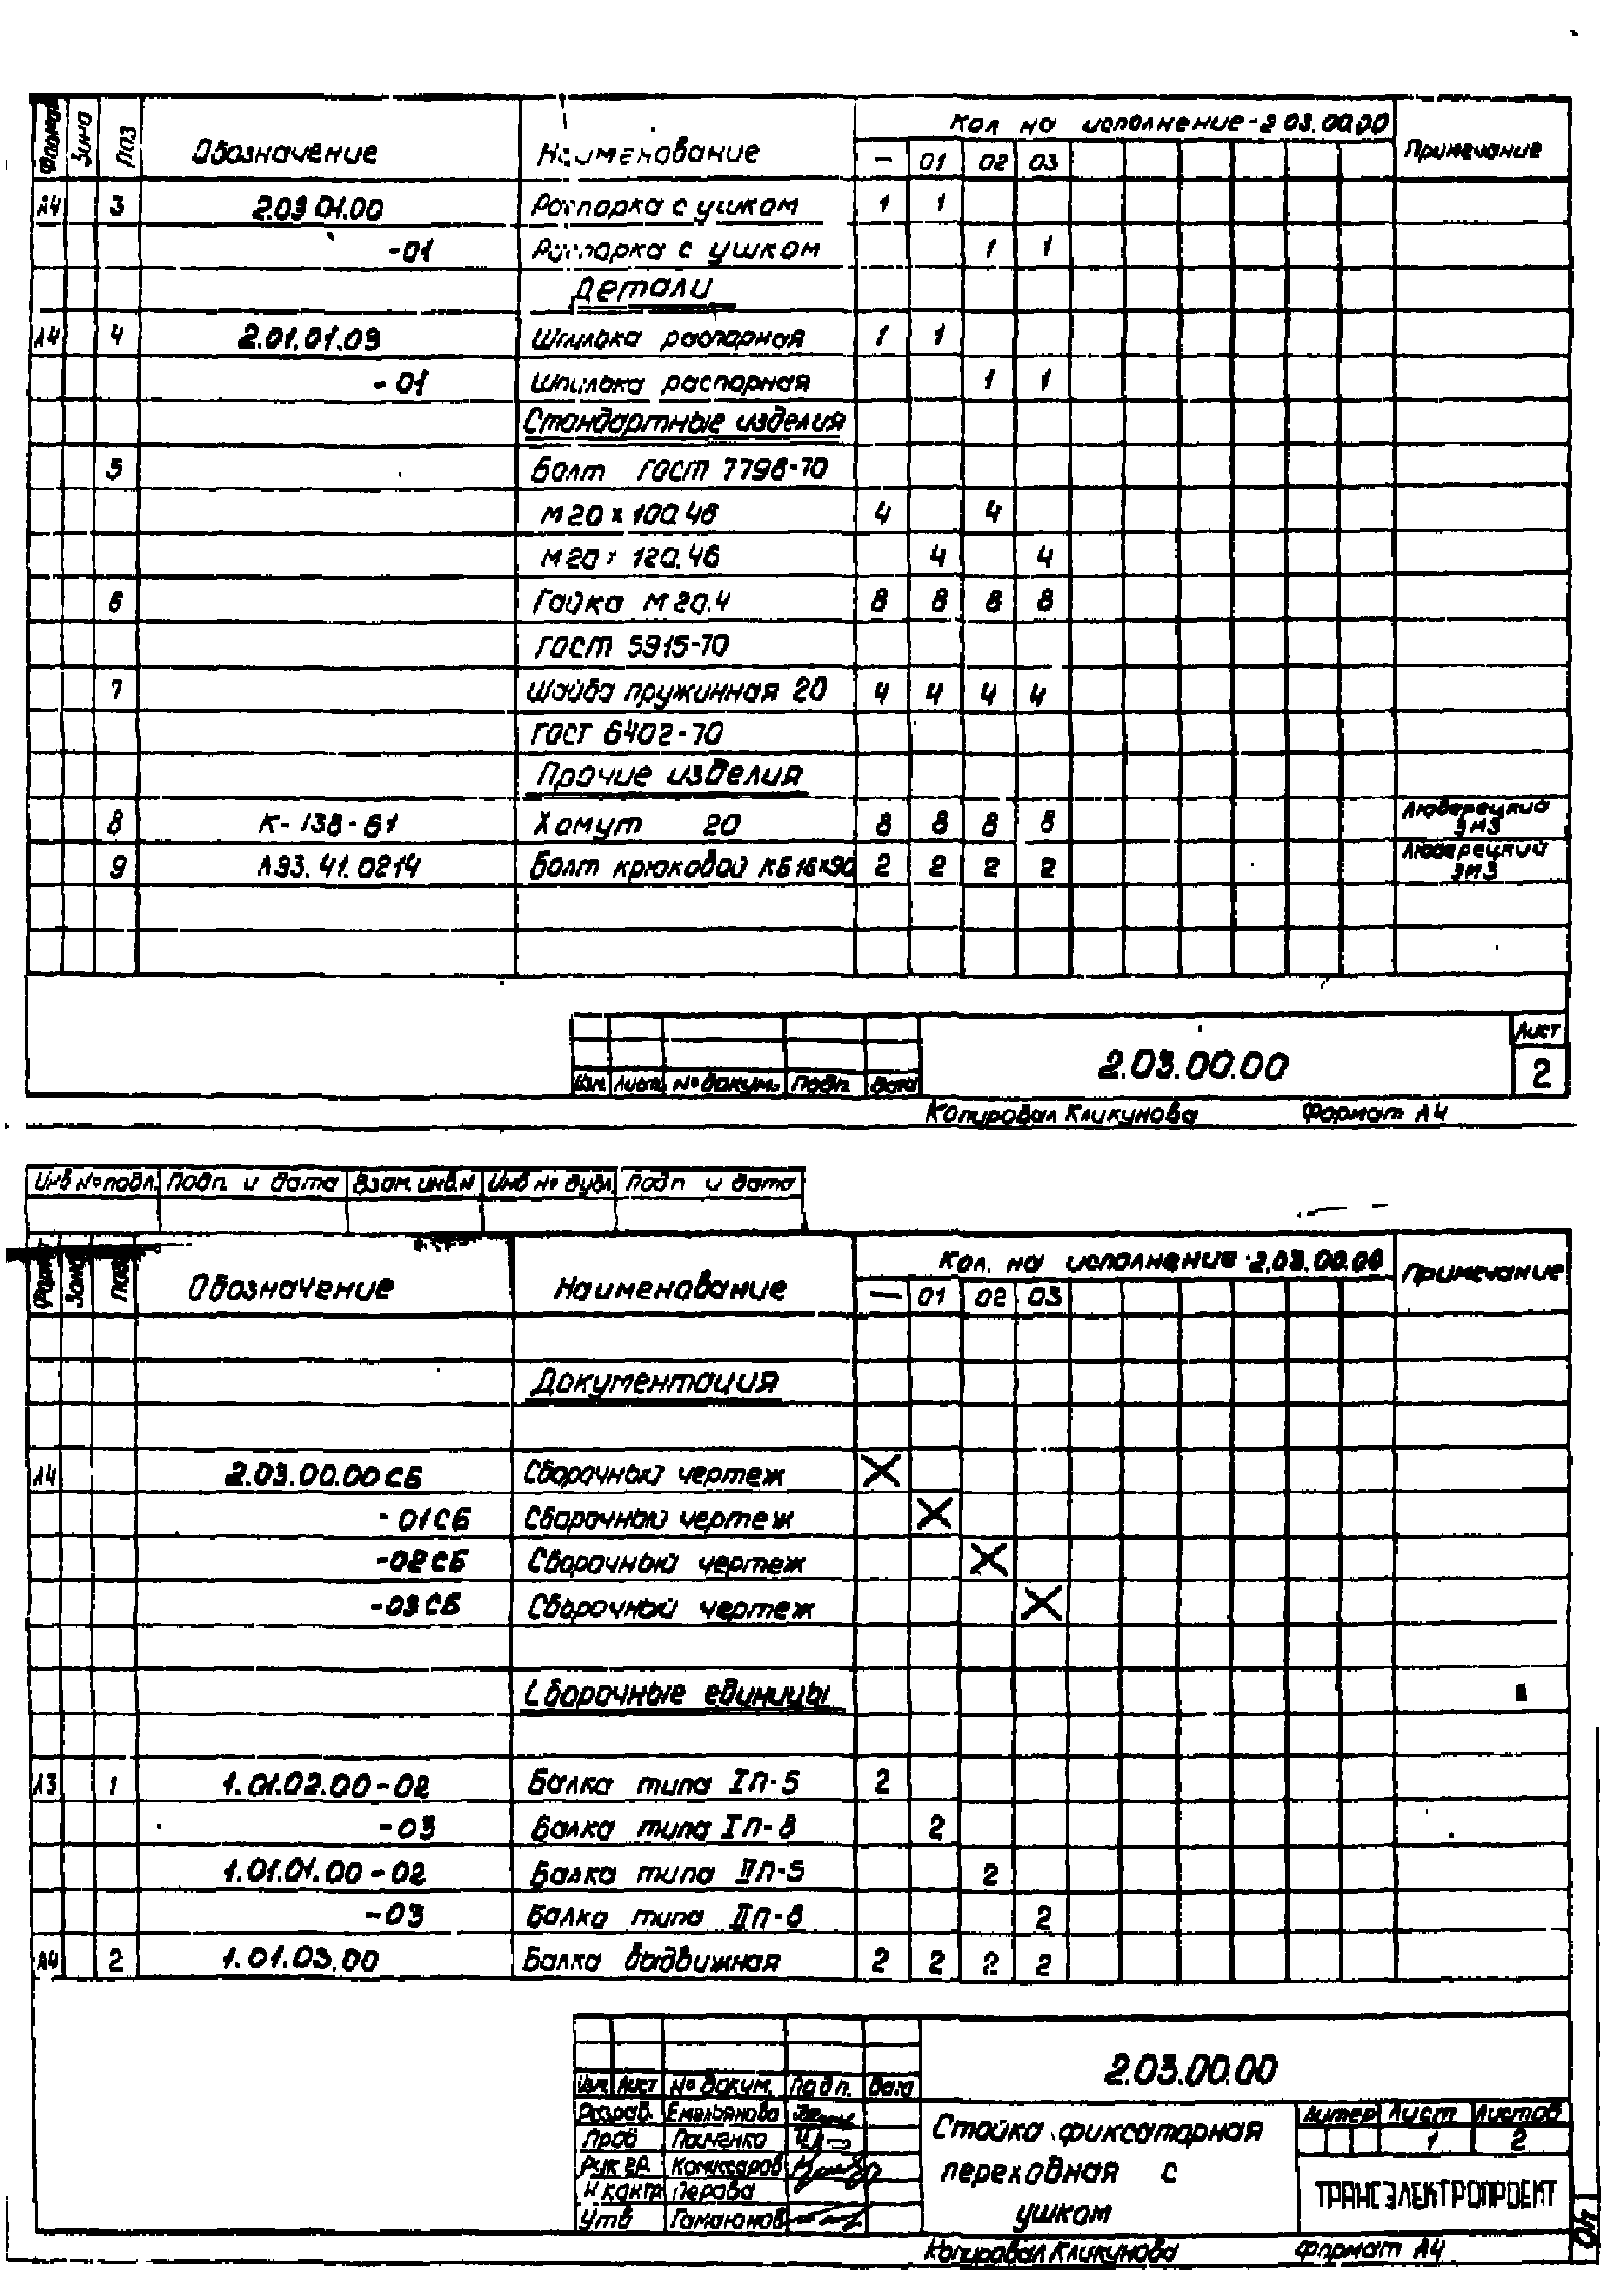 Формат Зона Поз Обозначение Наименование Кол на исполнение-2 03.00.00 Примечание
— 01 02 03
А4 3 2.03 01.00 Распорка с ушком 1 1
-01 Распорка с ушком 1 1
Детали
А4 4 2.01.01.03 Шпилька распорная 1 1
-01 Шпилька распорная 1 1
Стандартные изделия
5 Болт ГОСТ 7798-70
М20 х 100.46 4 4
М20 х 120.46 4 4
6 Гайка М20.4 8 8 8 8
ГОСТ 5915-70
7 Шайба пружинная 20 4 4 4 4
ГОСТ 6402-70
Прочие изделия
8 К-138-61 Хомут 20 8 8 8 8 Люберецкий ЭМЗ
9 Л93.41.0214 Болт крюковой КБ16х90 2 2 2 2 Люберецкий ЭМЗ
2.03.00.00 Лист
2
Изм. Лист № докум. Подп. Дата
Копировал Кликунова Формат А4
Инв № подл. Подп и дата Взам. инв. N Инв № дубл. Подп и дата
Форм Зона Поз Обозначение Наименование Кол. на исполнение-2.03.00.00 Примечание
— 01 02 03
Документация
А4 2.03.00.00 СБ Сборочный чертеж X
-01СБ Сборочный чертеж X
-02СБ Сборочный чертеж X
-03СБ Сборочный чертеж X
Сборочные единицы
А3 1 1.01.02.00-02 Балка типа IП-5 2
-03 Балка типа IП-6 2
1.01.01.00-02 Балка типа IIП-5 2
-03 Балка типа IIП-6 2
А4 2 1.01.03.00 Балка вадвижная 2 2 2 2
2.03.00.00
Изм. Лист № докум. Подп. Дата
Разраб. Емельянова
Пров Панченко
Рук гр. Комиссаров
Н контр Перова
Утв Гамаюнов
Стойка фиксаторная
переходная с
ушком
Литер Лист Листов
1 2
ТРАНСЭЛЕКТРОПРОЕКТ
Копировал Кликунова Формат А4
40